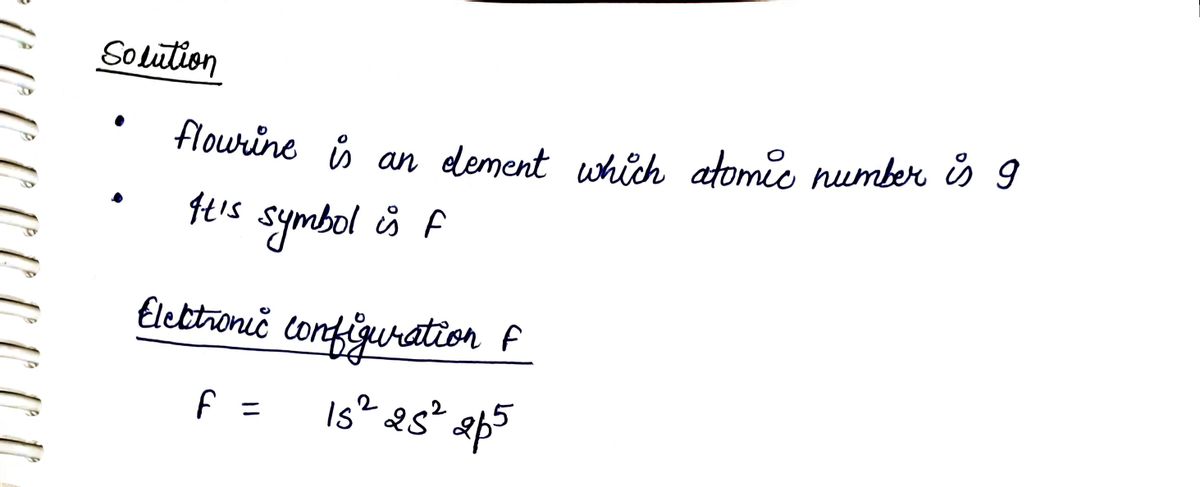 Solution
• flourine is an element which atomic number is 9
• It's symbol is F
Electronic configuration F
F = 1s² 2s² 2p⁵